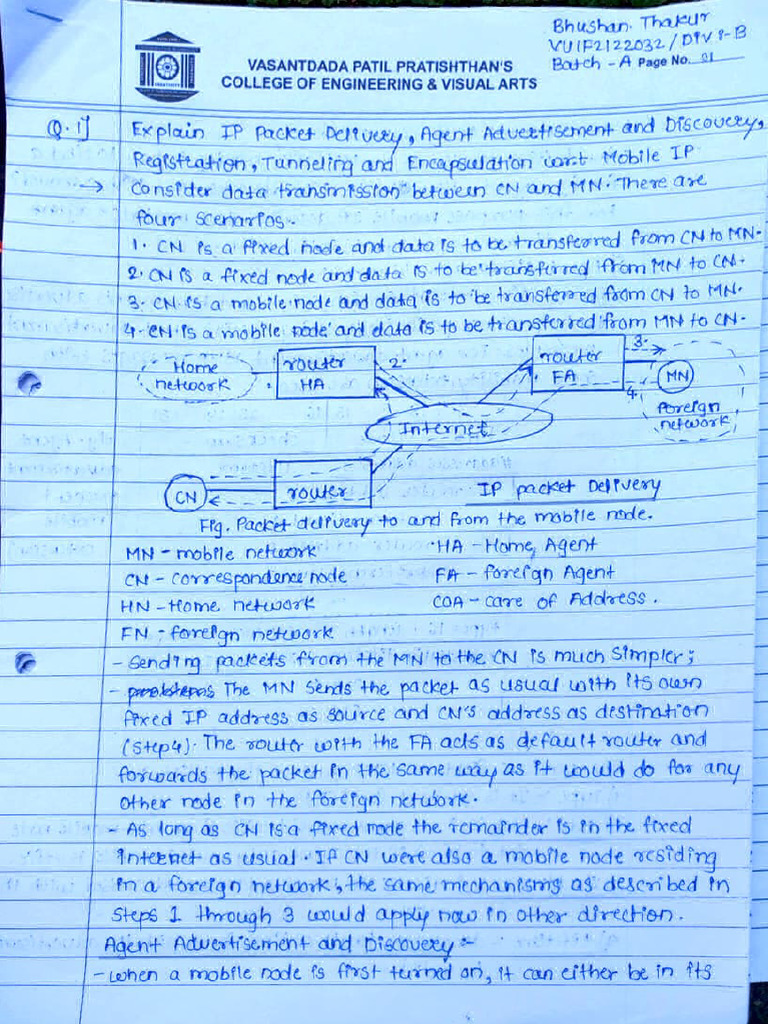 Bhushan Thakur
VU1F2122032 / DIV I-B
Batch - A Page No. 01
VASANTDADA PATIL PRATISHTHAN'S
COLLEGE OF ENGINEERING & VISUAL ARTS
Q.1] Explain IP Packet Delivery, Agent Advertisement and Discovery,
Registration, Tunneling and Encapsulation w.r.t Mobile IP
→ Consider data transmission between CN and MN. There are
four scenarios.
1. CN is a fixed node and data is to be transferred from CN to MN.
2. CN is a fixed node and data is to be transfirred from MN to CN.
3. CN is a mobile node and data is to be transferred from CN to MN.
4. CN is a mobile node and data is to be transferred from MN to CN.
Home network
router HA
2.
router FA
3.
4.
MN
foreign network
Internet
CN
router
IP packet Delivery
Fig. Packet delivery to and from the mobile node.
MN - mobile network HA - Home Agent
CN - correspondence node FA - foreign Agent
HN - Home network COA - care of Address.
FN - foreign network
- Sending packets from the MN to the CN is much simpler;
- The MN sends the packet as usual with its own
fixed IP address as source and CN's address as destination
(step4). The router with the FA acts as default router and
forwards the packet in the same way as it would do for any
other node in the foreign network.
- As long as CN is a fixed node the remainder is in the fixed
internet as usual. If CN were also a mobile node residing
in a foreign network, the same mechanisms as described in
steps 1 through 3 would apply now in other direction.
Agent Advertisement and Discovery :-
- when a mobile node is first turned on, it can either be in its